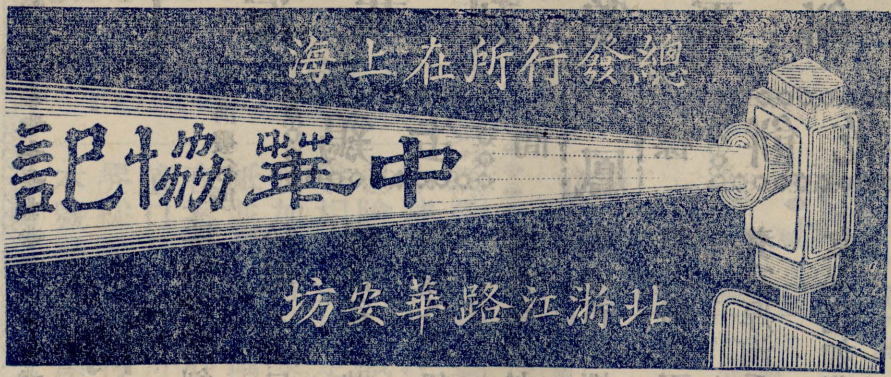 總發行所在上海
中華協記
北浙江路華安坊